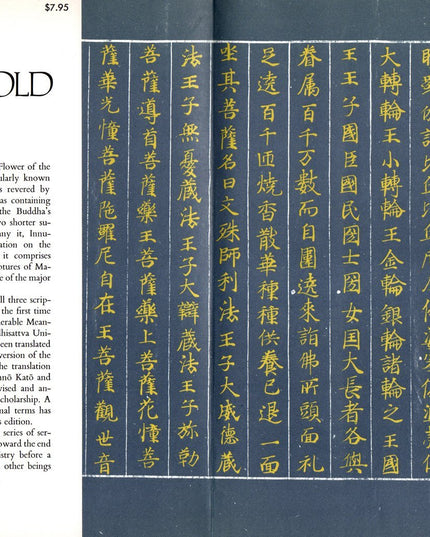 $7.95
OLD
Flower of the
ularly known
s revered by
as containing
the Buddha's
wo shorter su-
any it, Innu-
ation on the
it comprises
ptures of Ma-
e of the major
ll three scrip-
the first time
erable Mean-
dhisattva Uni-
een translated
version of the
he translation
nnō Katō and
vised and an-
cholarship. A
nal terms has
s edition.
series of ser-
oward the end
istry before a
other beings
大轉輪王小轉輪王金輪銀輪諸輪之王國
王王子國臣國民國士國女國大長者各與
眷属百千万數而自圍遶來詣佛所頭面礼
足遶百千匝燒香散華種種供養已退一面
坐其菩薩名曰文殊師利法王子大威德蔵
法王子無憂蔵法王子大辯蔵法王子弥勒
菩薩導首菩薩藥王菩薩藥上菩薩花幢菩
薩華光幢菩薩陁羅尼自在王菩薩觀世音